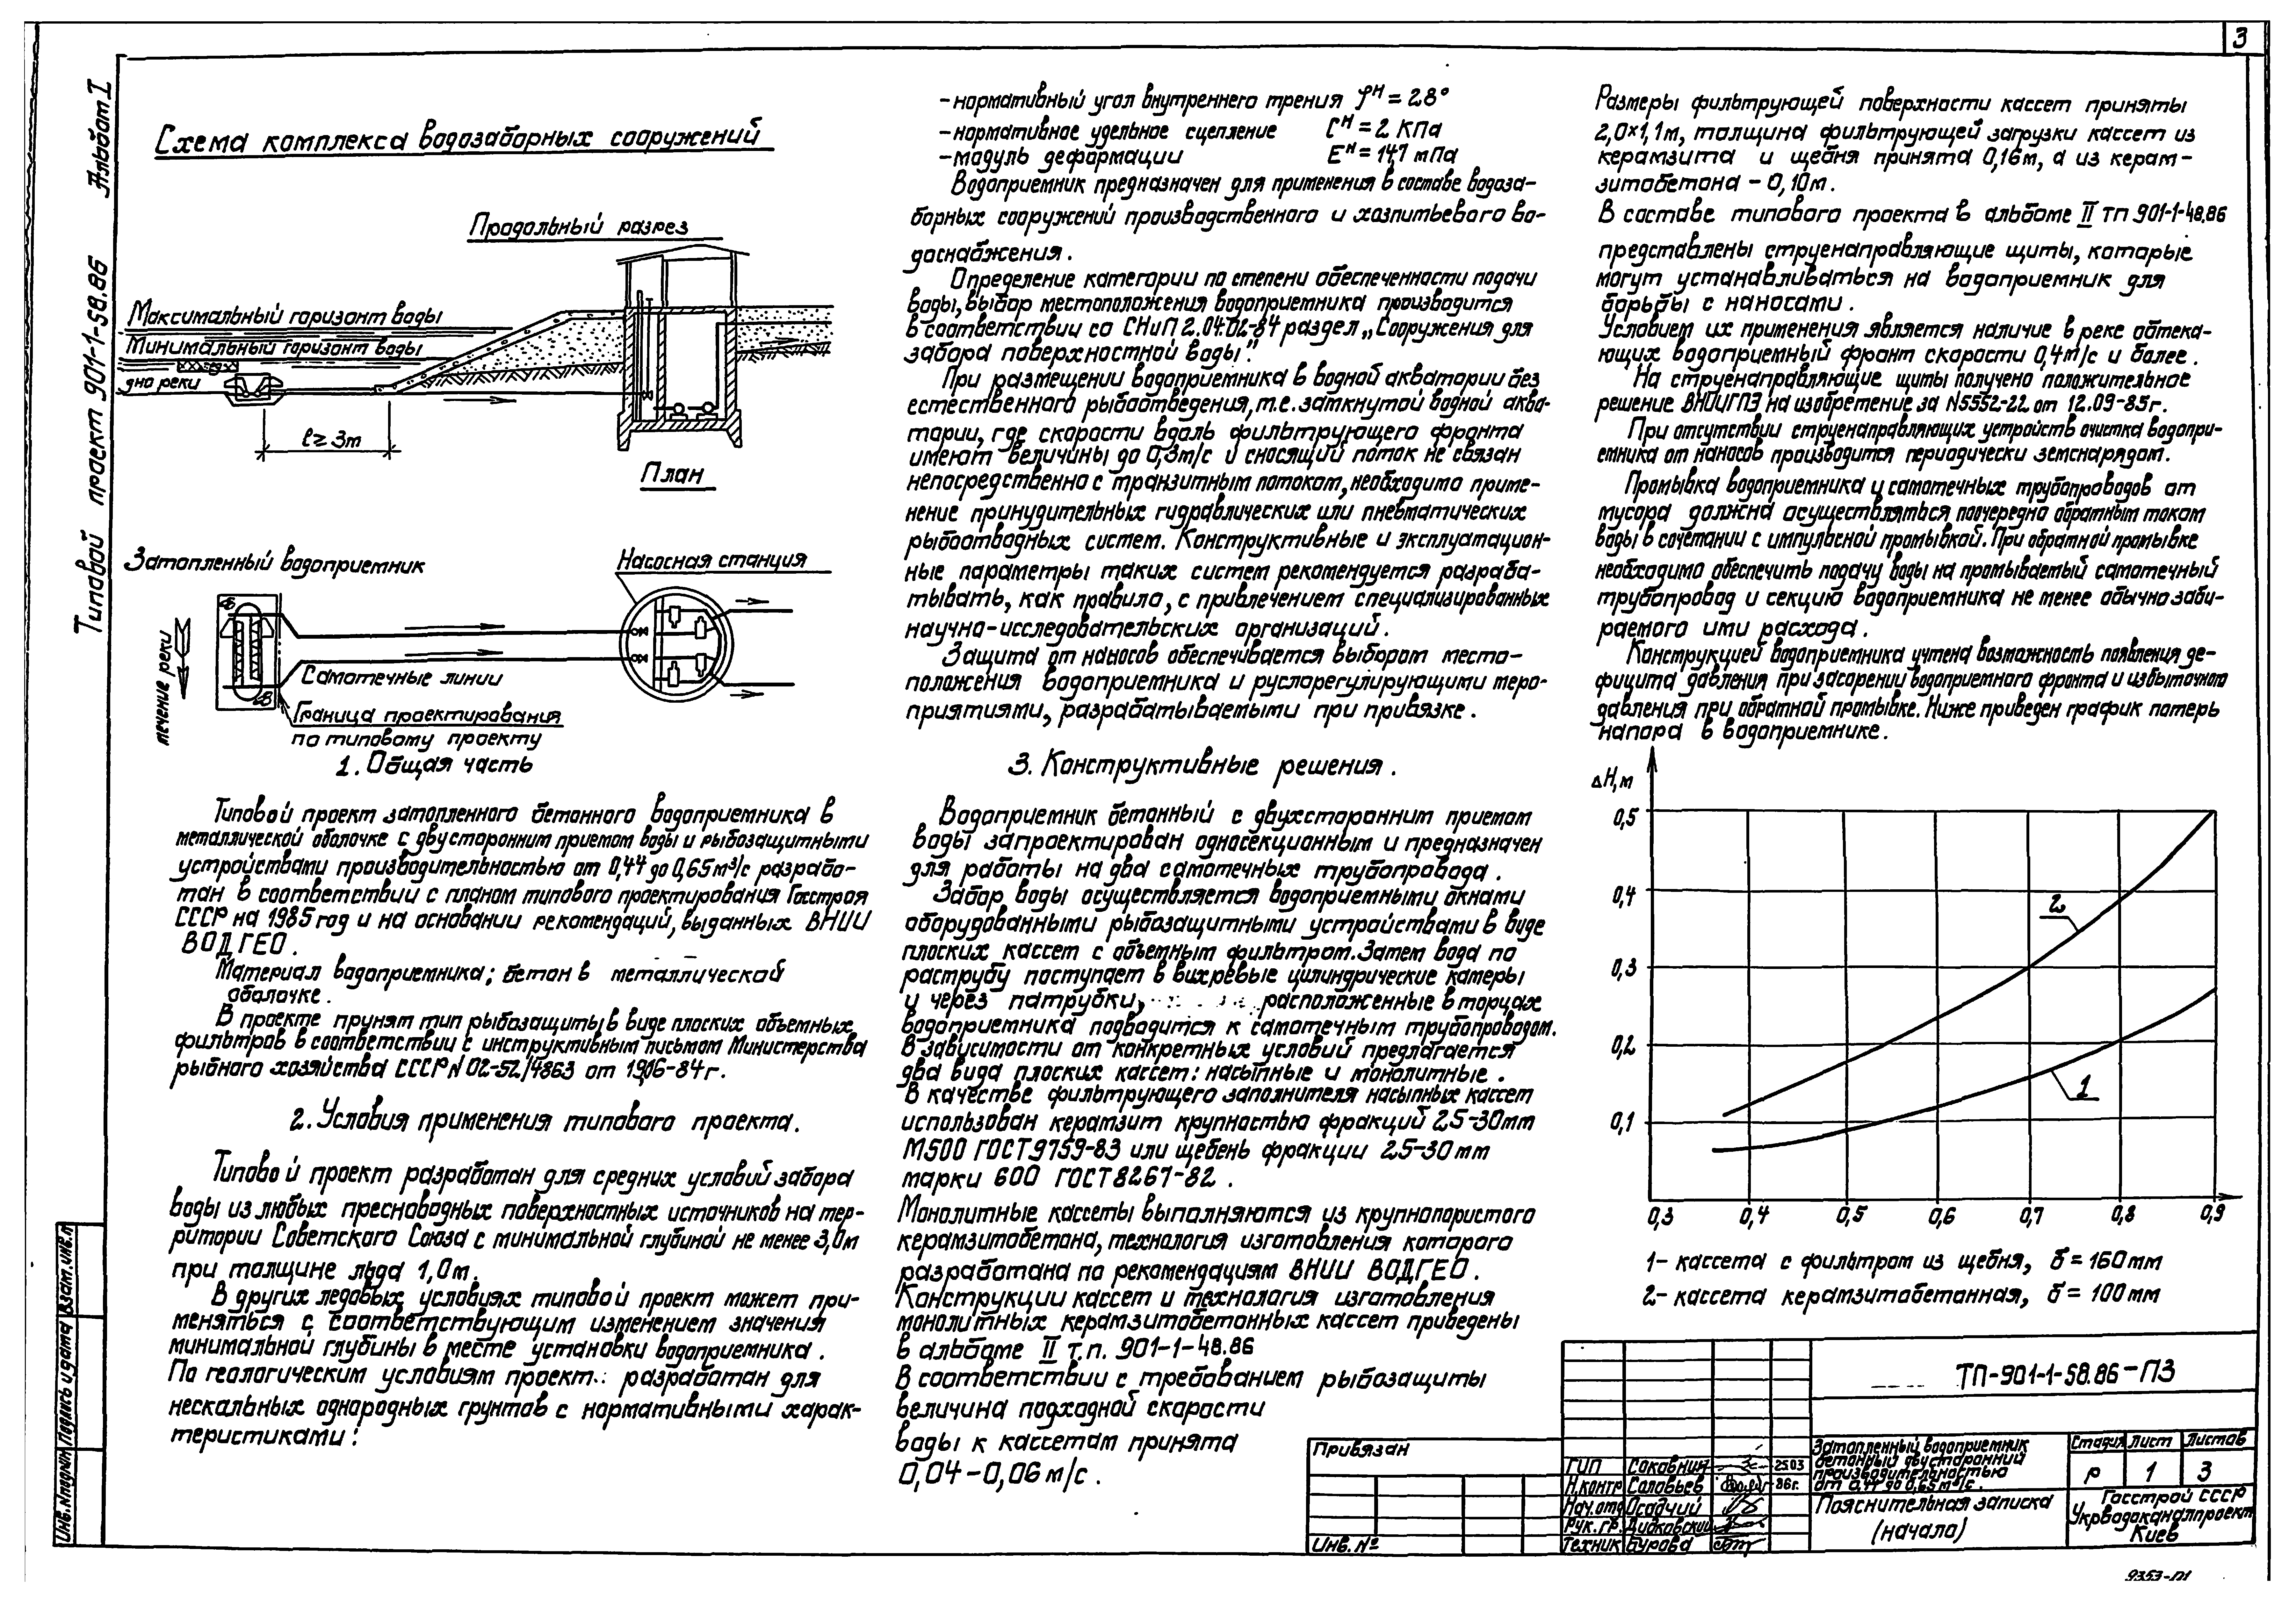 3
Альбом I
Типовой проект 901-1-58.86
Схема комплекса водозаборных сооружений
Продольный разрез
Максимальный горизонт воды
Минимальный горизонт воды
дно реки
l ≥ 3м
План
Затопленный водоприемник
Насосная станция
течение реки
Самотечные линии
Граница проектирования
по типовому проекту
1. Общая часть
Типовой проект затопленного бетонного водоприемника в
металлической оболочке с двусторонним приемом воды и рыбозащитными
устройствами производительностью от 0,44 до 0,65 м³/с разрабо-
тан в соответствии с планом типового проектирования Госстроя
СССР на 1985 год и на основании рекомендаций, выданных ВНИИ
ВОДГЕО.
Материал водоприемника; бетон в металлической
оболочке.
В проекте принят тип рыбозащиты в виде плоских объемных
фильтров в соответствии с инструктивным письмом Министерства
рыбного хозяйства СССР N 02-52/4863 от 19.06-84г.
2. Условия применения типового проекта.
Типовой проект разработан для средних условий забора
воды из любых пресноводных поверхностных источников на тер-
ритории Советского Союза с минимальной глубиной не менее 3,0м
при толщине льда 1,0м.
В других ледовых условиях типовой проект может при-
меняться с соответствующим изменением значения
минимальной глубины в месте установки водоприемника.
По геологическим условиям проект разработан для
нескальных однородных грунтов с нормативными харак-
теристиками:
-нормативный угол внутреннего трения φᴴ = 28°
-нормативное удельное сцепление Cᴴ = 2 КПа
-модуль деформации Eᴴ = 14,7 мПа
Водоприемник предназначен для применения в составе водоза-
борных сооружений производственного и хозпитьевого во-
доснабжения.
Определение категории по степени обеспеченности подачи
воды, выбор местоположения водоприемника производится
в соответствии со СНиП 2.04.02-84 раздел „Сооружения для
забора поверхностной воды".
При размещении водоприемника в водной акватории без
естественного рыбоотведения, т.е. замкнутой водной аква-
тории, где скорости вдоль фильтрующего фронта
имеют величины до 0,3м/с и сносящий поток не связан
непосредственно с транзитным потоком, необходимо приме-
нение принудительных гидравлических или пневматических
рыбоотводных систем. Конструктивные и эксплуатацион-
ные параметры таких систем рекомендуется разраба-
тывать, как правило, с привлечением специализированных
научно-исследовательских организаций.
Защита от наносов обеспечивается выбором место-
положения водоприемника и руслорегулирующими меро-
приятиями, разрабатываемыми при привязке.
3. Конструктивные решения.
Водоприемник бетонный с двухсторанним приемом
воды запроектирован односекционным и предназначен
для работы на два самотечных трубопровода.
Забор воды осуществляется водоприемными окнами
оборудованными рыбозащитными устройствами в виде
плоских кассет с объемным фильтром. Затем вода по
раструбу поступает в вихревые цилиндрические камеры
и через патрубки, расположенные в торцах
водоприемника подводится к самотечным трубопроводам.
В зависимости от конкретных условий предлагается
два вида плоских кассет: насыпные и монолитные.
В качестве фильтрующего заполнителя насыпных кассет
использован керамзит крупностью фракций 25-30мм
М500 ГОСТ 9759-83 или щебень фракции 25-30мм
марки 600 ГОСТ 8267-82.
Монолитные кассеты выполняются из крупнопористого
керамзитобетона, технология изготовления которого
разработана по рекомендациям ВНИИ ВОДГЕО.
Конструкции кассет и технология изготовления
монолитных керамзитобетонных кассет приведены
в альбоме II т.п. 901-1-48.86
В соответствии с требованием рыбозащиты
величина подходной скорости
воды к кассетам принята
0,04-0,06 м/с.
Размеры фильтрующей поверхности кассет приняты
2,0×1,1м, толщина фильтрующей загрузки кассет из
керамзита и щебня принята 0,16м, а из керам-
зитобетона - 0,10м.
В составе типового проекта в альбоме II тп 901-1-48.86
представлены струенаправляющие щиты, которые
могут устанавливаться на водоприемник для
борьбы с наносами.
Условием их применения является наличие в реке обтека-
ющих водоприемный фронт скорости 0,4м/с и более.
На струенаправляющие щиты получено положительное
решение ВНИИГПЭ на изобретение за N5552-22 от 12.09-85г.
При отсутствии струенаправляющих устройств очистка водопри-
емника от наносов производится периодически земснарядом.
Промывка водоприемника и самотечных трубопроводов от
мусора должна осуществляться поочередно обратным током
воды в сочетании с импульсной промывкой. При обратной промывке
необходимо обеспечить подачу воды на промываемый самотечный
трубопровод и секцию водоприемника не менее обычно заби-
раемого ими расхода.
Конструкцией водоприемника учтена возможность появления де-
фицита давления при засорении водоприемного фронта и избыточного
давления при обратной промывке. Ниже приведен график потерь
напора в водоприемнике.
ΔH, м
0,5
0,4
0,3
0,2
0,1
2
1
0,3 0,4 0,5 0,6 0,7 0,8 0,9
1- кассета с фильтром из щебня, δ = 160мм
2- кассета керамзитобетонная, δ = 100мм
ТП-901-1-58.86-ПЗ
Привязан
Инв. №
ГИП Соковнин 25.03
Н.контр Соловьев 86г.
Нач.отд Осадчий
Рук.гр. Дидковский
Техник Бурова
Затопленный водоприемник
бетонный двусторонний
производительностью
от 0,44 до 0,65 м³/с.
Стадия Лист Листов
Р 1 3
Пояснительная записка
(начало)
Госстрой СССР
Укрводоканалпроект
Киев
Взам.инв.N
Подпись и дата
Инв.Nподлин
9353-01